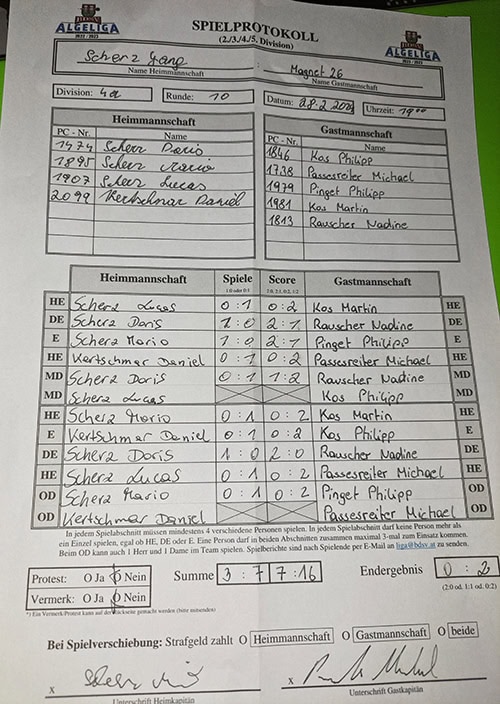 ALGELIGA
2022 / 2023
SPIELPROTOKOLL
(2./3./4./5. Division)
ALGELIGA
2022 / 2023
Scherz Gang : Magnet 26
Name Heimmannschaft Name Gastmannschaft
Division: 4a Runde: 10 Datum: 28.2.2023 Uhrzeit: 19 00
Heimmannschaft
PC - Nr. Name
1474 Scherz Doris
1895 Scherz Mario
1907 Scherz Lucas
2099 Kertschmar Daniel
Gastmannschaft
PC - Nr. Name
1846 Kos Philipp
1738 Passesreiter Michael
1979 Pinget Philipp
1981 Kos Martin
1813 Rauscher Nadine
Heimmannschaft Spiele Score Gastmannschaft
1:0 oder 0:1 2:0, 2:1, 0:2, 1:2
HE Scherz Lucas 0 : 1 0 : 2 Kos Martin HE
DE Scherz Doris 1 : 0 2 : 1 Rauscher Nadine DE
E Scherz Mario 1 : 0 2 : 1 Pinget Philipp E
HE Kertschmar Daniel 0 : 1 0 : 2 Passesreiter Michael HE
MD Scherz Doris 0 : 1 1 : 2 Rauscher Nadine MD
MD Scherz Lucas Kos Philipp MD
HE Scherz Mario 0 : 1 0 : 2 Kos Martin HE
E Kertschmar Daniel 0 : 1 0 : 2 Kos Philipp E
DE Scherz Doris 1 : 0 2 : 0 Rauscher Nadine DE
HE Scherz Lucas 0 : 1 0 : 2 Passesreiter Michael HE
OD Scherz Mario 0 : 1 0 : 2 Pinget Philipp OD
OD Kertschmar Daniel Passesreiter Michael OD
In jedem Spielabschnitt müssen mindestens 4 verschiedene Personen spielen. In jedem Spielabschnitt darf keine Person mehr als
ein Einzel spielen, egal ob HE, DE oder E. Eine Person darf in beiden Abschnitten zusammen maximal 3-mal zum Einsatz kommen.
Beim OD kann auch 1 Herr und 1 Dame im Team spielen. Spielberichte sind nach Spielende per E-Mail an liga@bdsv.at zu senden.
Protest: O Ja O Nein Summe 3 : 7 7 : 16 Endergebnis 0 : 2
Vermerk: O Ja O Nein (2:0 od. 1:1 od. 0:2)
*) Ein Vermerk/Protest kann auf der Rückseite gemacht werden (bitte ankreuzen)
Bei Spielverschiebung: Strafgeld zahlt O Heimmannschaft O Gastmannschaft O beide
x x
Unterschrift Heimkapitän Unterschrift Gastkapitän